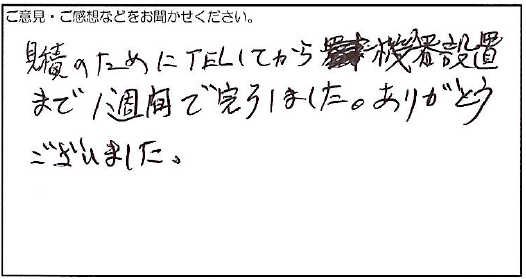 ご意見・ご感想などをお聞かせください。
見積のためにTELしてから機器設置
まで1週間で完了しました。ありがとう
ございました。